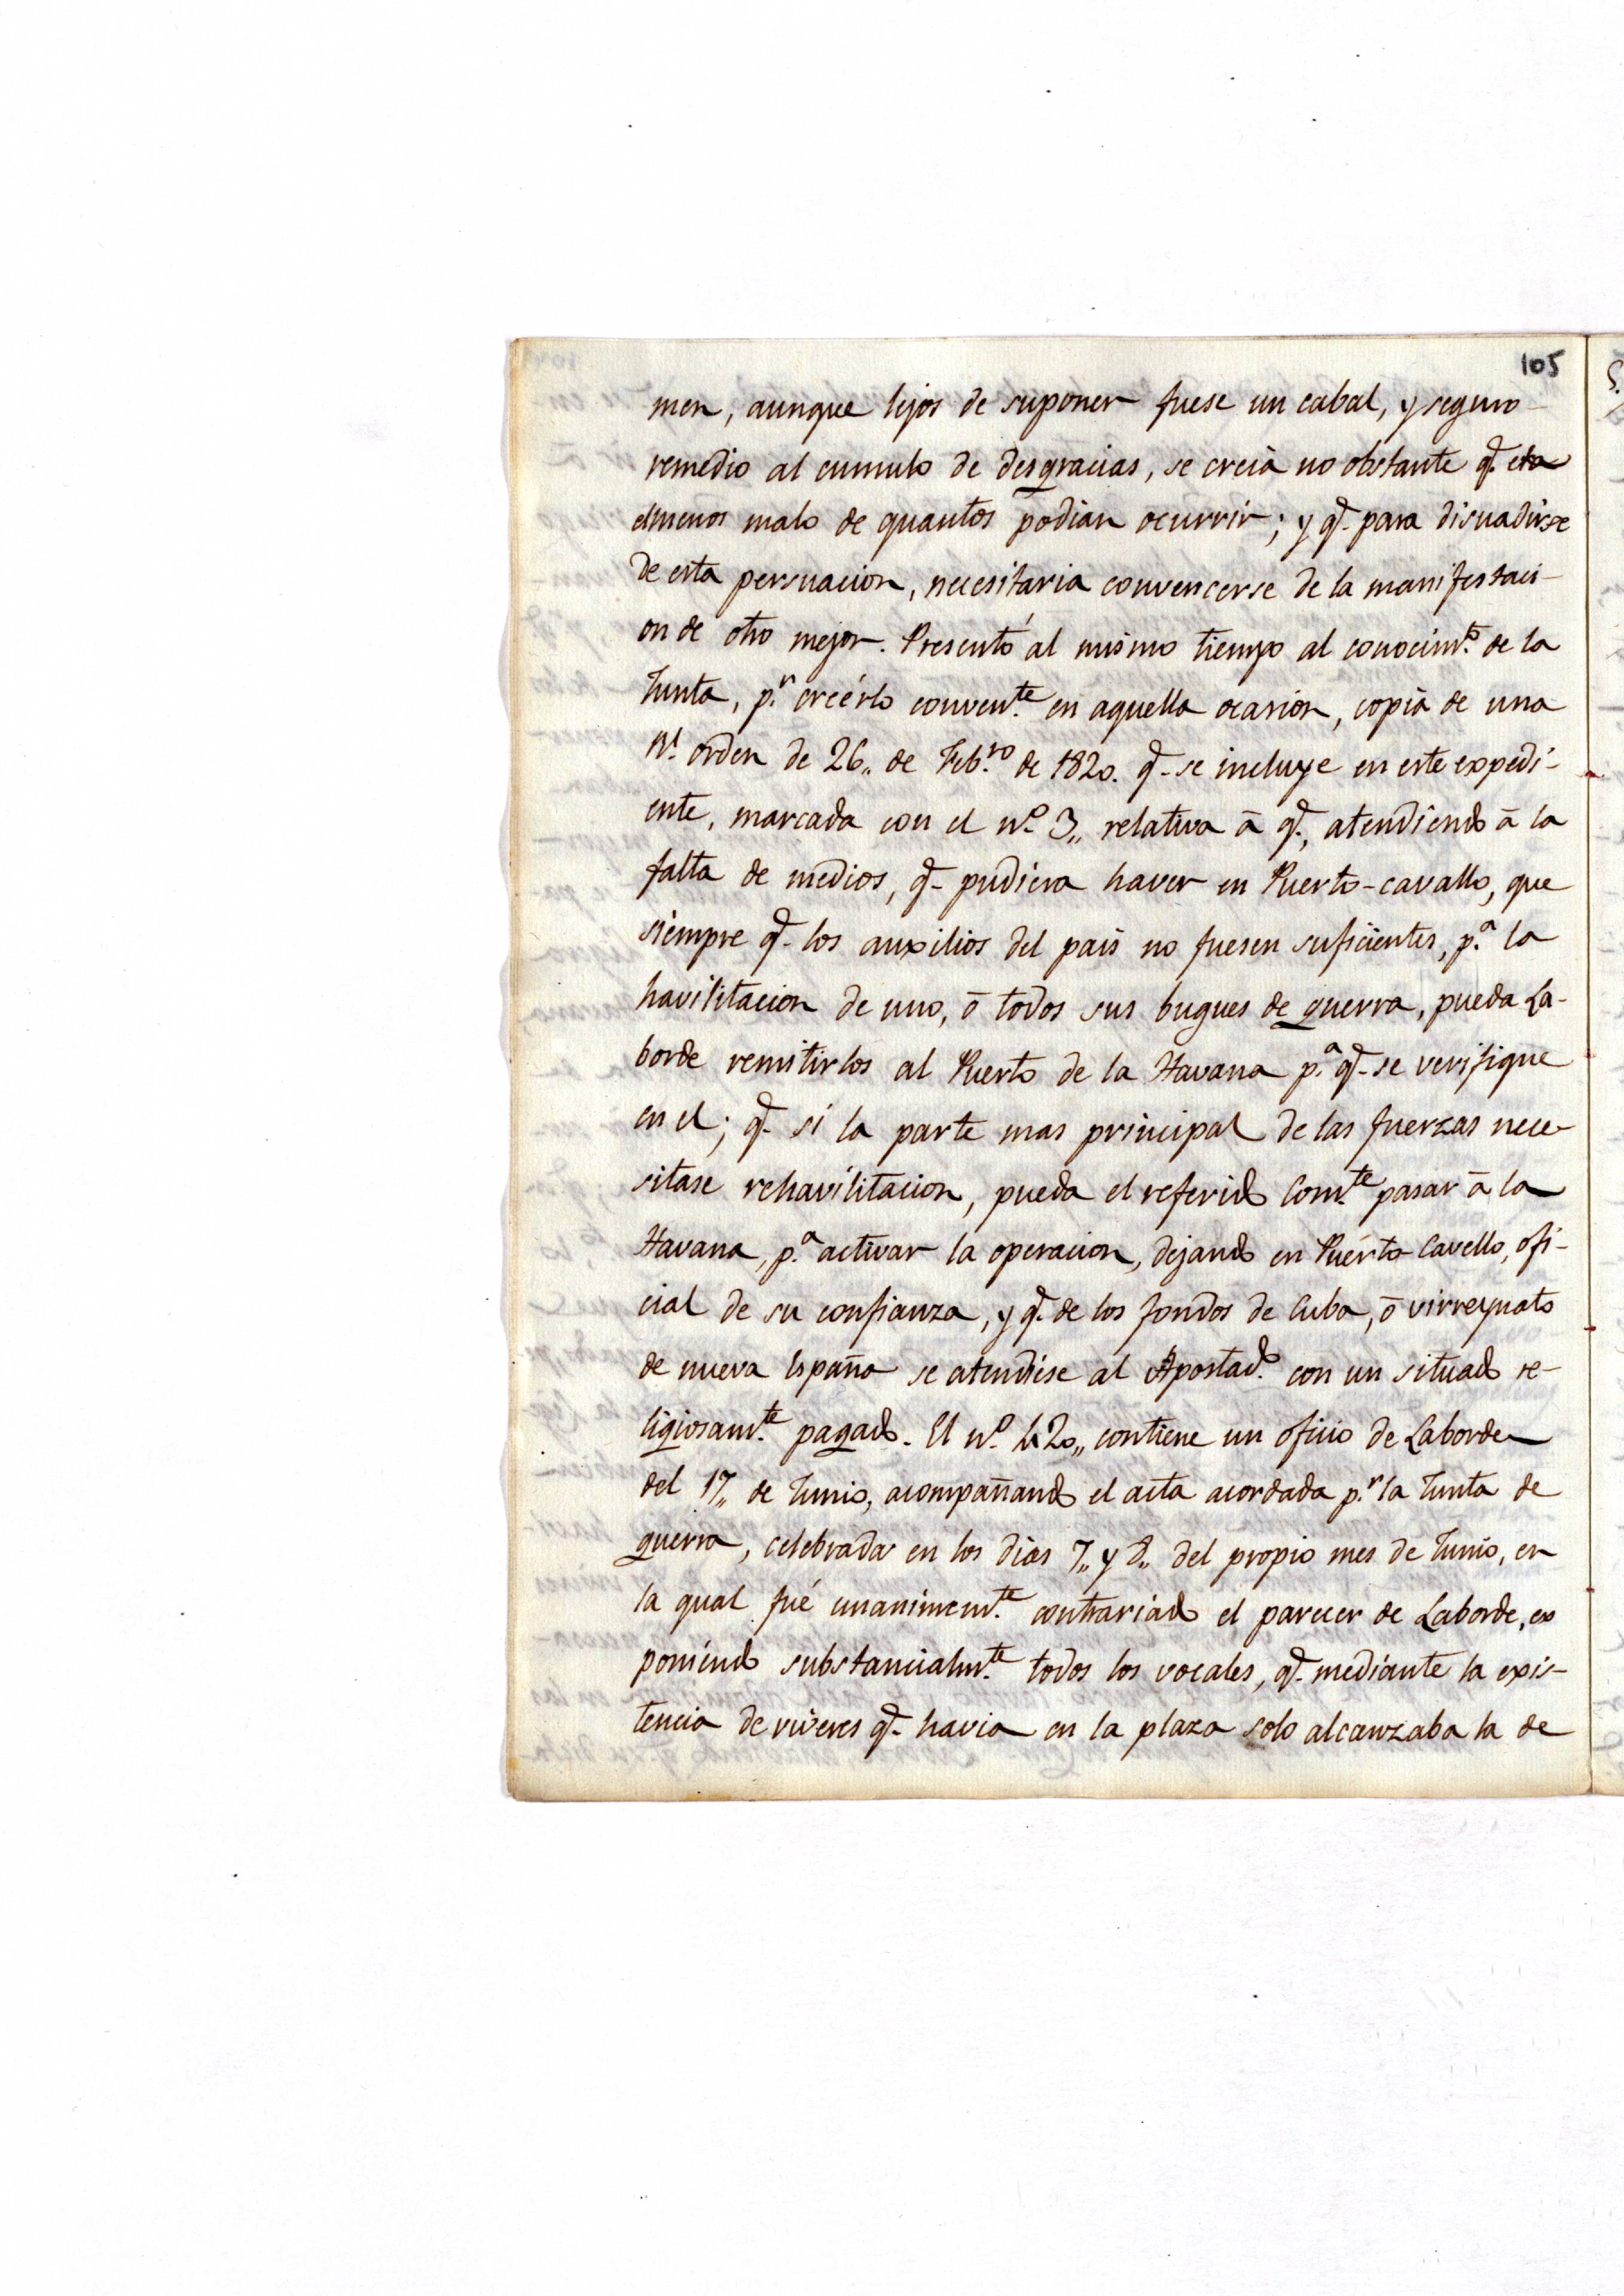 105
men, aunque lejos de suponer fuese un cabal, y seguro
remedio al cumulo de desgracias, se creia no obstante q.e era
el menos malo de quantos podian ocurrir; y q.e para disuadirse
de esta persuacion, necesitaria convencerse de la manifestaci-
on de otro mejor. Presentó al mismo tiempo al conocim.to de la
Junta, p.r creérlo conven.te en aquella ocasion, copia de una
R.l orden de 26,, de Feb.ro de 1820. q.e se incluye en este expedi-
ente, marcada con el n.o 3,, relativa á q.e, atendiendo á la
falta de medios, q.e pudiera haver en Puerto-cavallo, que
siempre q.e los auxilios del pais no fuesen suficientes, p.a la
havilitacion de uno, ó todos sus buques de guerra, pueda La-
borde remitirlos al Puerto de la Havana p.a q.e se verifique
en el; q.e si la parte mas principal de las fuerzas nece-
sitase rehavilitacion, pueda el referido Com.te pasar á la
Havana, p.a activar la operacion, dejando en Puerto Cavello, ofi-
cial de su confianza, y q.e de los fondos de Cuba, ó virreynato
de nueva España se atendiese al Apostad.o con un situado re-
ligiosam.te pagado. El n.o 20,, contiene un oficio de Laborde
del 17,, de Junio, acompañando el acta acordada p.r la Junta de
guerra, celebrada en los dias 7,, y 8,, del propio mes de Junio, en
la qual fué unanimem.te contrariado el parecer de Laborde, ex
poniendo substancialm.te todos los vocales, q.e mediante la exis-
tencia de viveres q.e havia en la plaza solo alcanzaba la de